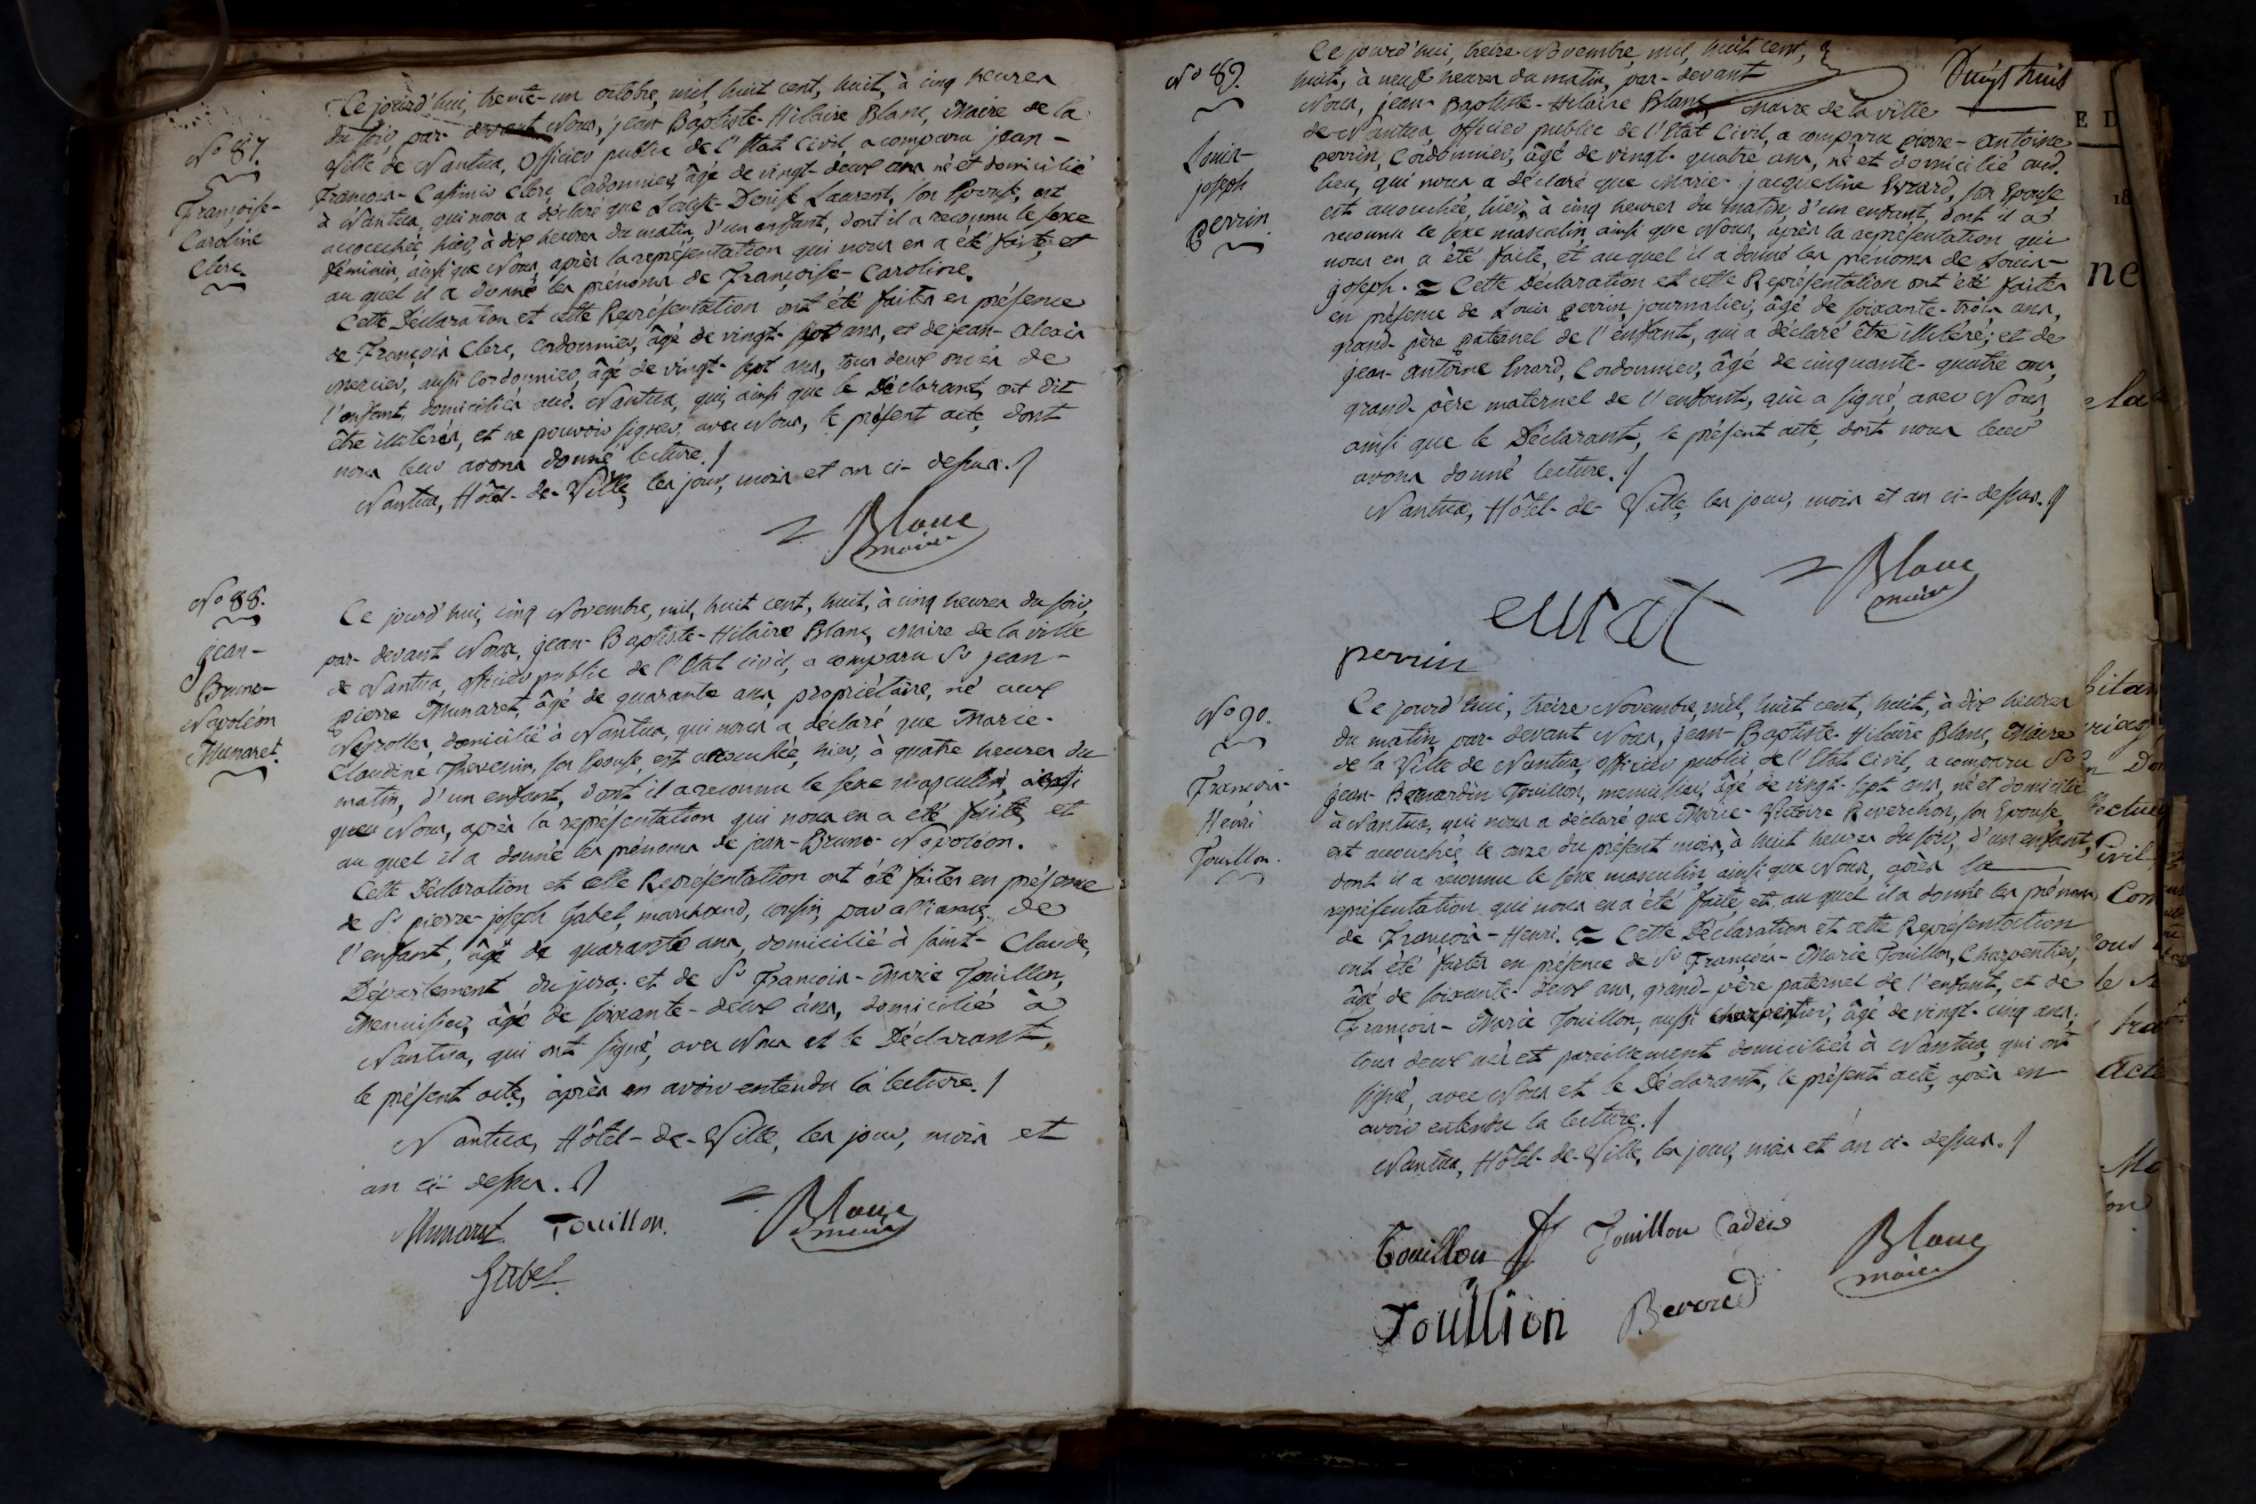 Ce jourd'hui, trente-un octobre, mil, huit cent, huit, à cinq heures
du soir par-devant Nous, jean-Baptiste-Hilaire Blanc, Maire de la
Ville de Nantua, Officier public de l'Etat Civil, a comparu jean-
François-Casimir Clerc, Cordonnier, âgé de vingt-deux ans né et domicilié
à Nantua, qui nous a déclaré que Denise Laurent, son Epouse, est
accouchée, hier, à dix heures du matin, d'un enfant, dont il a reconnu le sexe
féminin, ainsi que Nous, après la représentation qui nous en a été faite, et
au quel il a donné les prénoms de Françoise-Caroline.
Cette Déclaration et cette Représentation ont été faites en présence
de François Clerc, cordonnier, âgé de vingt-sept ans, et de jean-
mercier, aussi Cordonnier, âgé de vingt-sept ans, tous deux oncles de
l'enfant, domiciliés aud. Nantua, qui, ainsi que le Déclarant, ont dit
être illitérés, et ne pouvoir signer, avec Nous, le présent acte, dont
nous leur avons donné lecture.
Nantua, Hôtel-de-Ville, les jour, mois et an ci-dessus.
Blanc
maire
No 87.
Françoise-
Caroline
Clerc.
No 88.
jean-
Bruno-
Napoléon
Munaret.
Ce jourd'hui, cinq Novembre, mil, huit cent, huit, à cinq heures du soir,
par-devant Nous, jean-Baptiste-Hilaire Blanc, Maire de la ville
de Nantua, officier public de l'Etat civil, a comparu Sr jean-
pierre Munaret, âgé de quarante ans, propriétaire, né aux
Neyrolles, domicilié à Nantua, qui nous a déclaré que Marie-
Claudine Thevenin, son Epouse, est accouchée, hier, à quatre heures du
matin, d'un enfant, dont il a reconnu le sexe masculin, ainsi
que Nous, après la représentation qui nous en a été faite, et
au quel il a donné les prénoms de jean-Bruno-Napoléon.
Cette Déclaration et cette Représentation ont été faites en présence
de Sr pierre-joseph Gabet, marchand, cousin, par alliance, de
l'enfant, âgé de quarante ans, domicilié à Saint-Claude,
Département du jura; et de Sr François-Marie Touillon,
Menuisier, âgé de soixante-deux ans, domicilié à
Nantua, qui ont signé, avec Nous et le Déclarant,
le présent acte, après en avoir entendu la lecture.
Nantua, Hôtel-de-Ville, les jour, mois et
an ci-dessus.
Munaret Touillon. Blanc
maire
Gabet
No 89.
Louis-
joseph
perrin.
Ce jourd'hui, treize Novembre, mil, huit cent,
huit, à neuf heures du matin, par-devant
Nous, jean-Baptiste-Hilaire Blanc, Maire de la ville
de Nantua, officier public de l'Etat Civil, a comparu pierre-antoine
perrin, Cordonnier, âgé de vingt-quatre ans, né et domicilié aud.
lieu, qui nous a déclaré que Marie-jacqueline Evrard, son Epouse
est accouchée, hier, à cinq heures du matin, d'un enfant, dont il a
reconnu le sexe masculin ainsi que Nous, après la représentation qui
nous en a été faite, et auquel il a donné les prénoms de Louis-
joseph. = Cette Déclaration et cette Représentation ont été faites
en présence de Louis perrin, journalier, âgé de soixante-trois ans,
grand-père paternel de l'enfant, qui a déclaré être illitéré; et de
jean-antoine Evrard, Cordonnier, âgé de cinquante-quatre ans,
grand-père maternel de l'enfant, qui a signé, avec Nous,
ainsi que le Déclarant, le présent acte, dont nous leur
avons donné lecture.
Nantua, Hôtel-de-Ville, les jour, mois et an ci-dessus.
Blanc
maire
perrin
No 90.
François-
Henri
Touillon.
Ce jourd'hui, treize Novembre, mil, huit cent, huit, à dix heures
du matin, par-devant Nous, jean-Baptiste-Hilaire Blanc, Maire
de la Ville de Nantua, officier public de l'Etat Civil, a comparu Sr
jean-Bernardin Touillon, menuisier, âgé de vingt-sept ans, né et domicilié
à Nantua, qui nous a déclaré que Marie-Victoire Reverchon, son Epouse,
est accouchée, le onze du présent mois, à huit heures du soir, d'un enfant,
dont il a reconnu le sexe masculin, ainsi que Nous, après la
représentation qui nous en a été faite et, au quel il a donné les prénoms
de François-Henri. = Cette Déclaration et cette Représentation
ont été faites en présence de Sr François-Marie Touillon, Charpentier,
âgé de soixante-deux ans, grand-père paternel de l'enfant, et de
François-Marie Touillon, aussi charpentier, âgé de vingt-cinq ans,
tous deux nés et pareillement domiciliés à Nantua, qui ont
signé, avec Nous et le Déclarant, le présent acte, après en
avoir entendu la lecture.
Nantua, Hôtel-de-Ville, les jour, mois et an ci-dessus.
Touillon Touillon Cadet Blanc
maire
Toullion